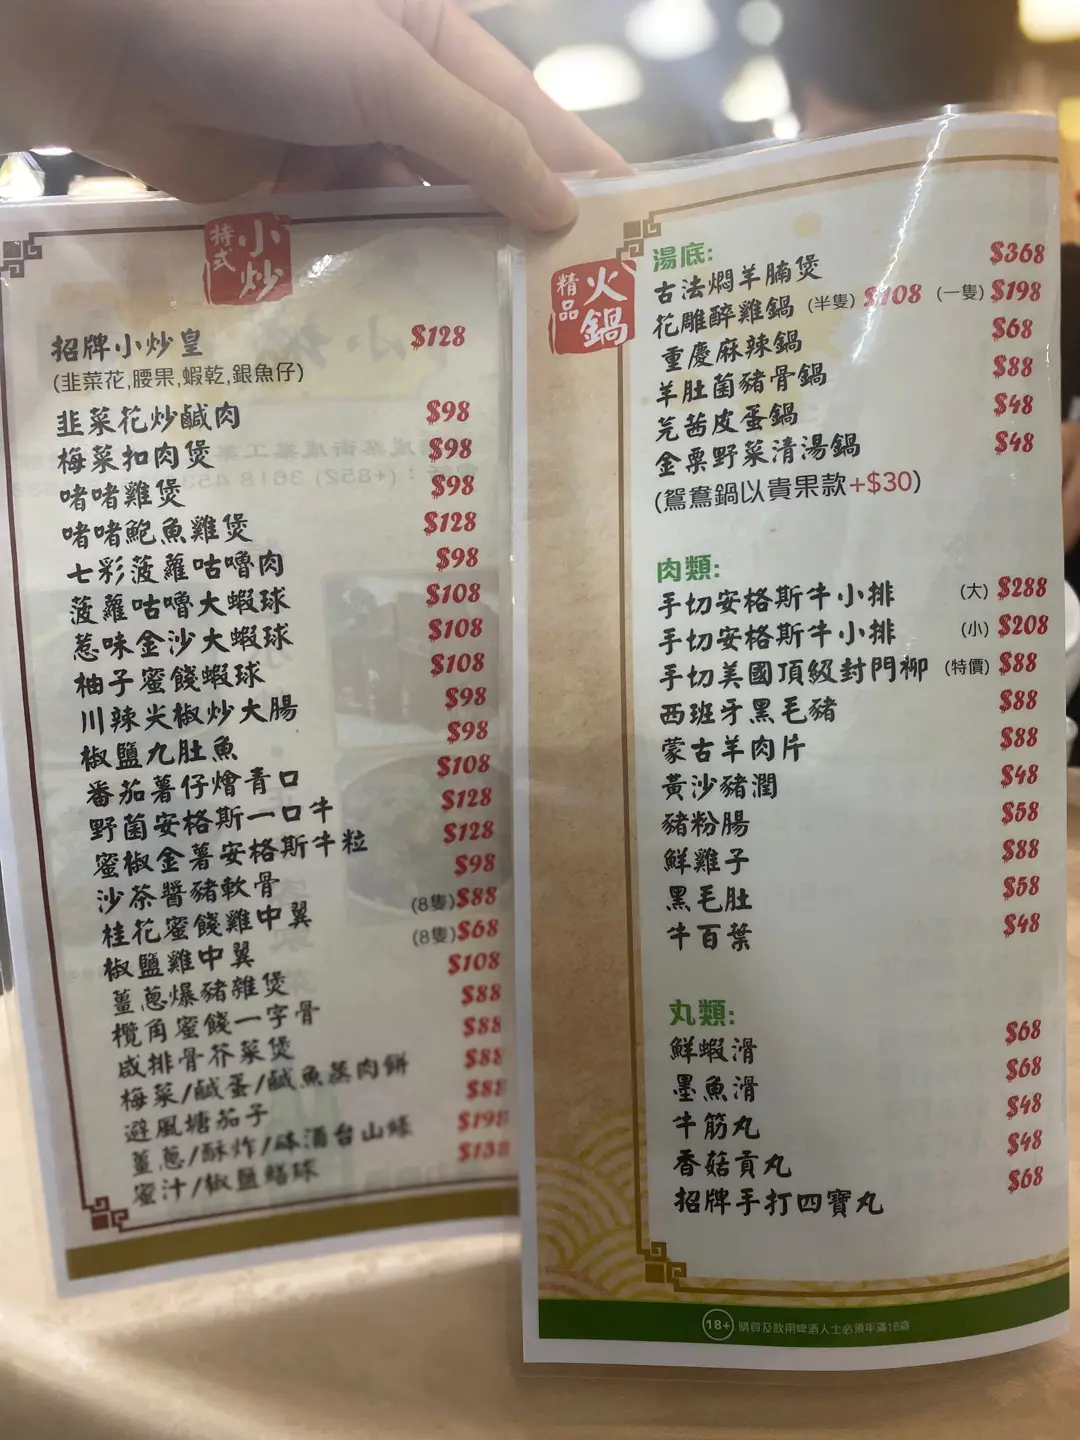 特式
小炒
招牌小炒皇 $128
(韭菜花,腰果,蝦乾,銀魚仔)
韭菜花炒鹹肉 $98
梅菜扣肉煲 $98
啫啫雞煲 $98
啫啫鮑魚雞煲 $128
七彩菠蘿咕嚕肉 $98
菠蘿咕嚕大蝦球 $108
惹味金沙大蝦球 $108
柚子蜜餞蝦球 $108
川辣尖椒炒大腸 $98
椒鹽九肚魚 $98
番茄薯仔燴青口 $108
野菌安格斯一口牛 $128
蜜椒金薯安格斯牛粒 $128
沙茶醬豬軟骨 $98
桂花蜜餞雞中翼 (8隻)$88
椒鹽雞中翼 (8隻)$68
薑蔥爆豬雜煲 $108
欖角蜜餞一字骨 $88
咸排骨芥菜煲 $88
梅菜/鹹蛋/鹹魚蒸肉餅 $88
避風塘茄子 $88
薑蔥/酥炸/砵酒台山蠔 $198
蜜汁/椒鹽鱔球 $138
精品
火鍋
湯底:
古法燜羊腩煲 $368
花雕醉雞鍋 (半隻) $108 (一隻) $198
重慶麻辣鍋 $68
羊肚菌豬骨鍋 $88
芫茜皮蛋鍋 $48
金粟野菜清湯鍋 $48
(鴛鴦鍋以貴果款+$30)
肉類:
手切安格斯牛小排 (大) $288
手切安格斯牛小排 (小) $208
手切美國頂級封門柳 (特價) $88
西班牙黑毛豬 $88
蒙古羊肉片 $88
黃沙豬潤 $48
豬粉腸 $58
鮮雞子 $88
黑毛肚 $58
牛百葉 $48
丸類:
鮮蝦滑 $68
墨魚滑 $68
牛筋丸 $48
香菇貢丸 $48
招牌手打四寶丸 $68
18+ 購買及飲用啤酒人士必須年滿18歲